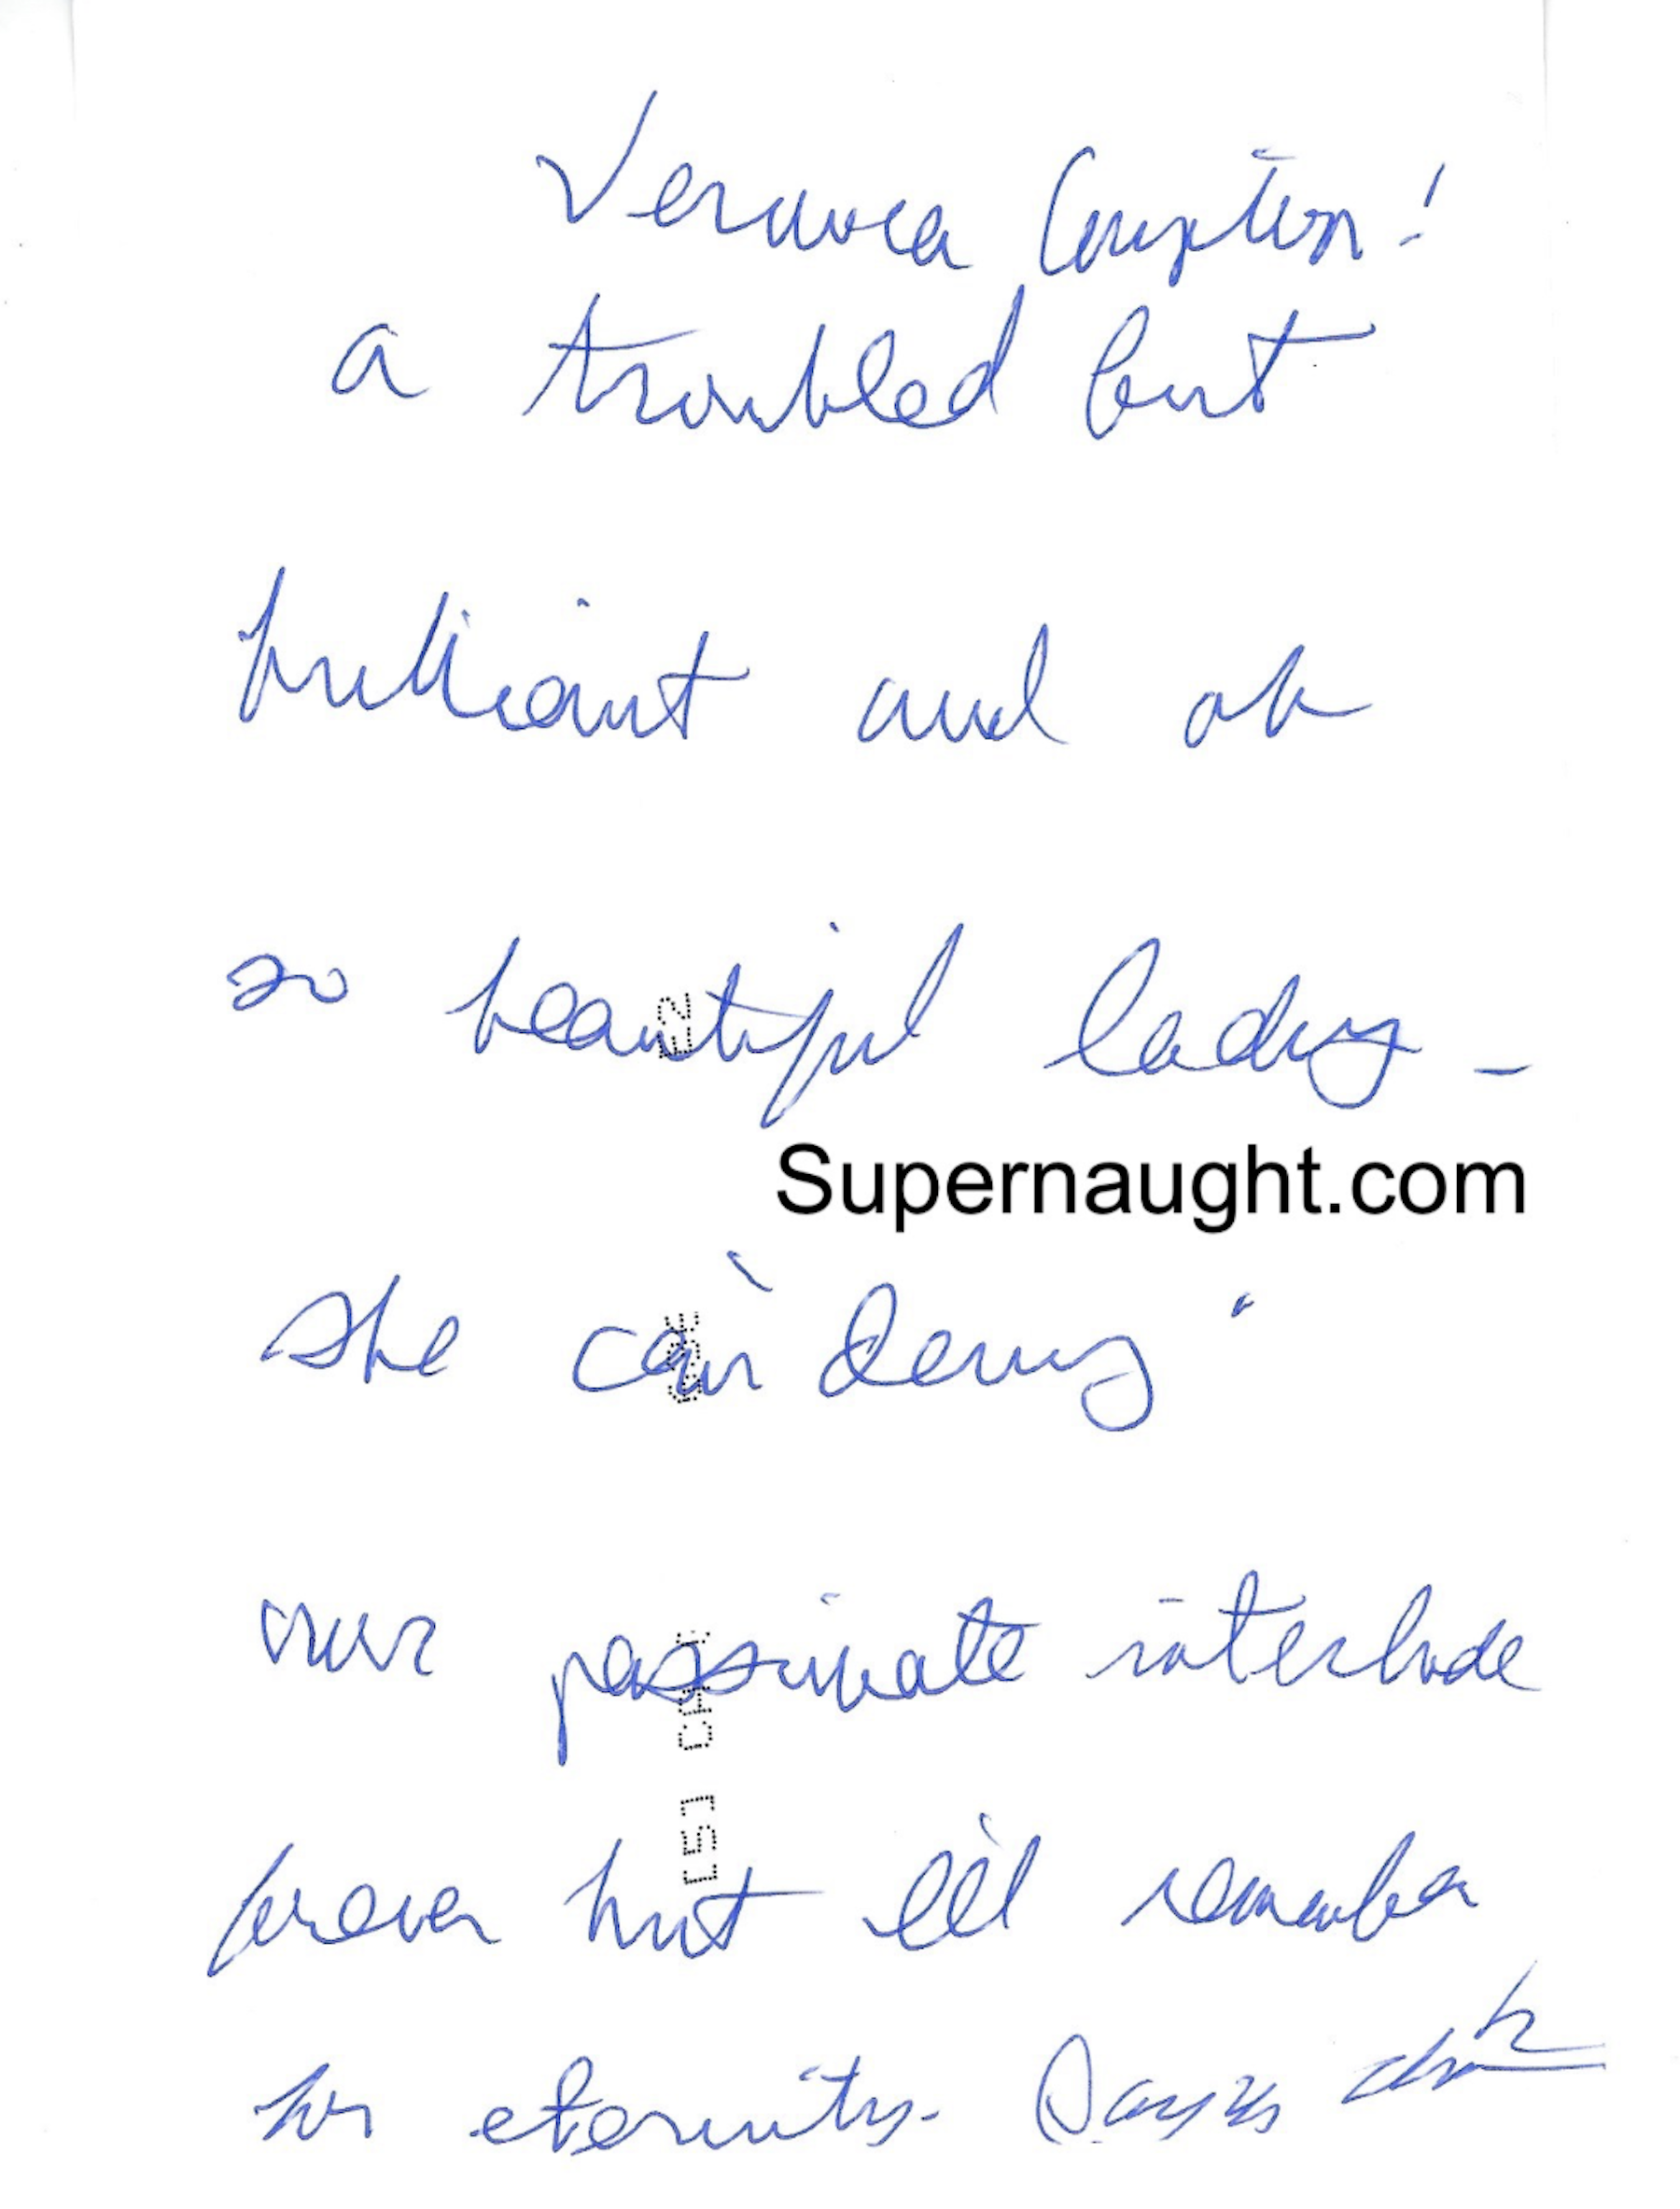 Veronica Compton!
a troubled but
brilliant and oh
so beautiful lady –
Supernaught.com
she can deny
our passionate interlude
forever but i'll remember
for eternity.